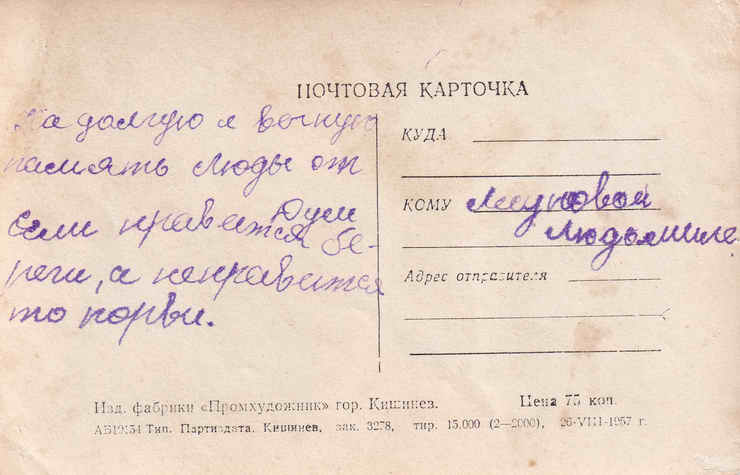 ПОЧТОВАЯ КАРТОЧКА
На долгую и вечную
память Люды от
Юли
Если нравится бе-
реги, а ненравится
то порви.
КУДА
КОМУ
Людомиле
Адрес отправителя
Изд. фабрики «Промхудожник» гор. Кишинев.
Цена 75 коп.
АБ19154 Тип. Партиздата, Кишинев, зак. 3278, тир. 15.000 (2—2000), 26-VIII-1957 г.